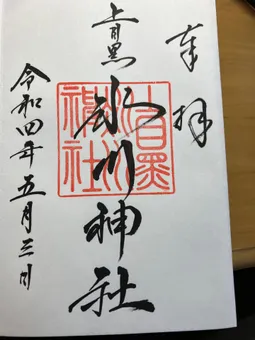 奉拝
上目黒
氷川神社
上目黒氷川神社
令和四年五月三日